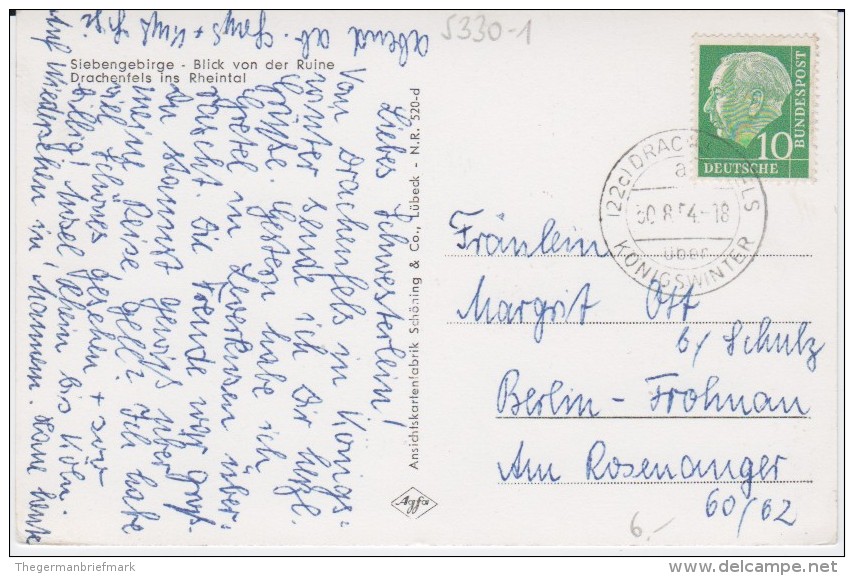 Siebengebirge - Blick von der Ruine
Drachenfels ins Rheintal
5330-1
Liebes Schwesterlein!
Vom Drachenfels in Königs=
winter sende ich Dir herzl.
Grüße. Gestern habe ich
Gretel in Leverkusen über=
rascht. Die Freude war groß.
Du staunst gewiß über
meine Reise gell? Ich habe
viel schönes gesehen + zwar
billig! Insel Rhein bis Köln.
Auf Wiedersehen in Mannem. Haue heute
abend ab. Gruß + Kuß
Ansichtskartenfabrik Schöning & Co., Lübeck - N.R. 520-d
Agfa
DEUTSCHE
BUNDESPOST
10
(22c) DRACHENFELS
a
30.8.54.-18
über
KÖNIGSWINTER
Fräulein
Margrit Ott
b/ Schulz
Berlin-Frohnau
Am Rosenanger
60/62
6.-
Thegermanbriefmark
delcampe.net